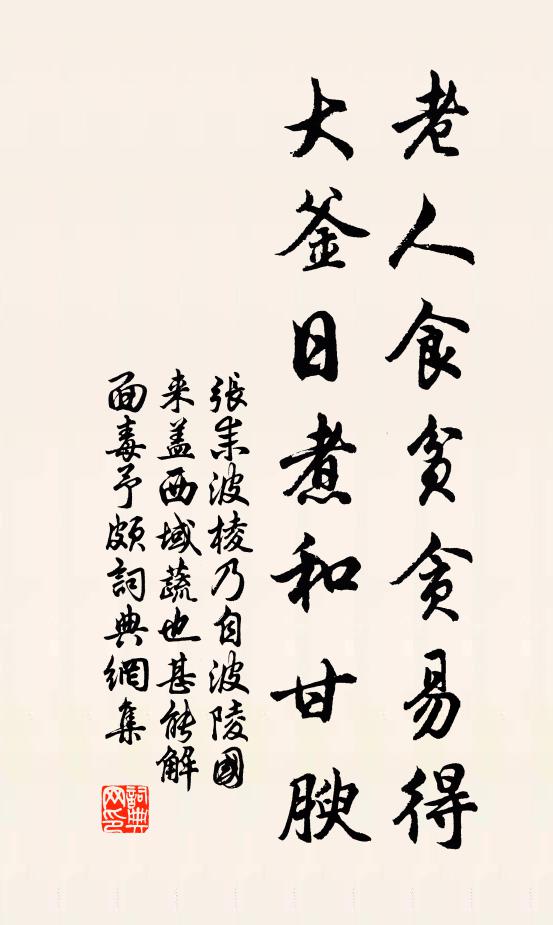 老人食贫贪易得
大釜日煮和甘腴
張耒波棱乃自波陵國
来盖西域蔬也甚能解
面毒予頗詞典網集
詞典
网印